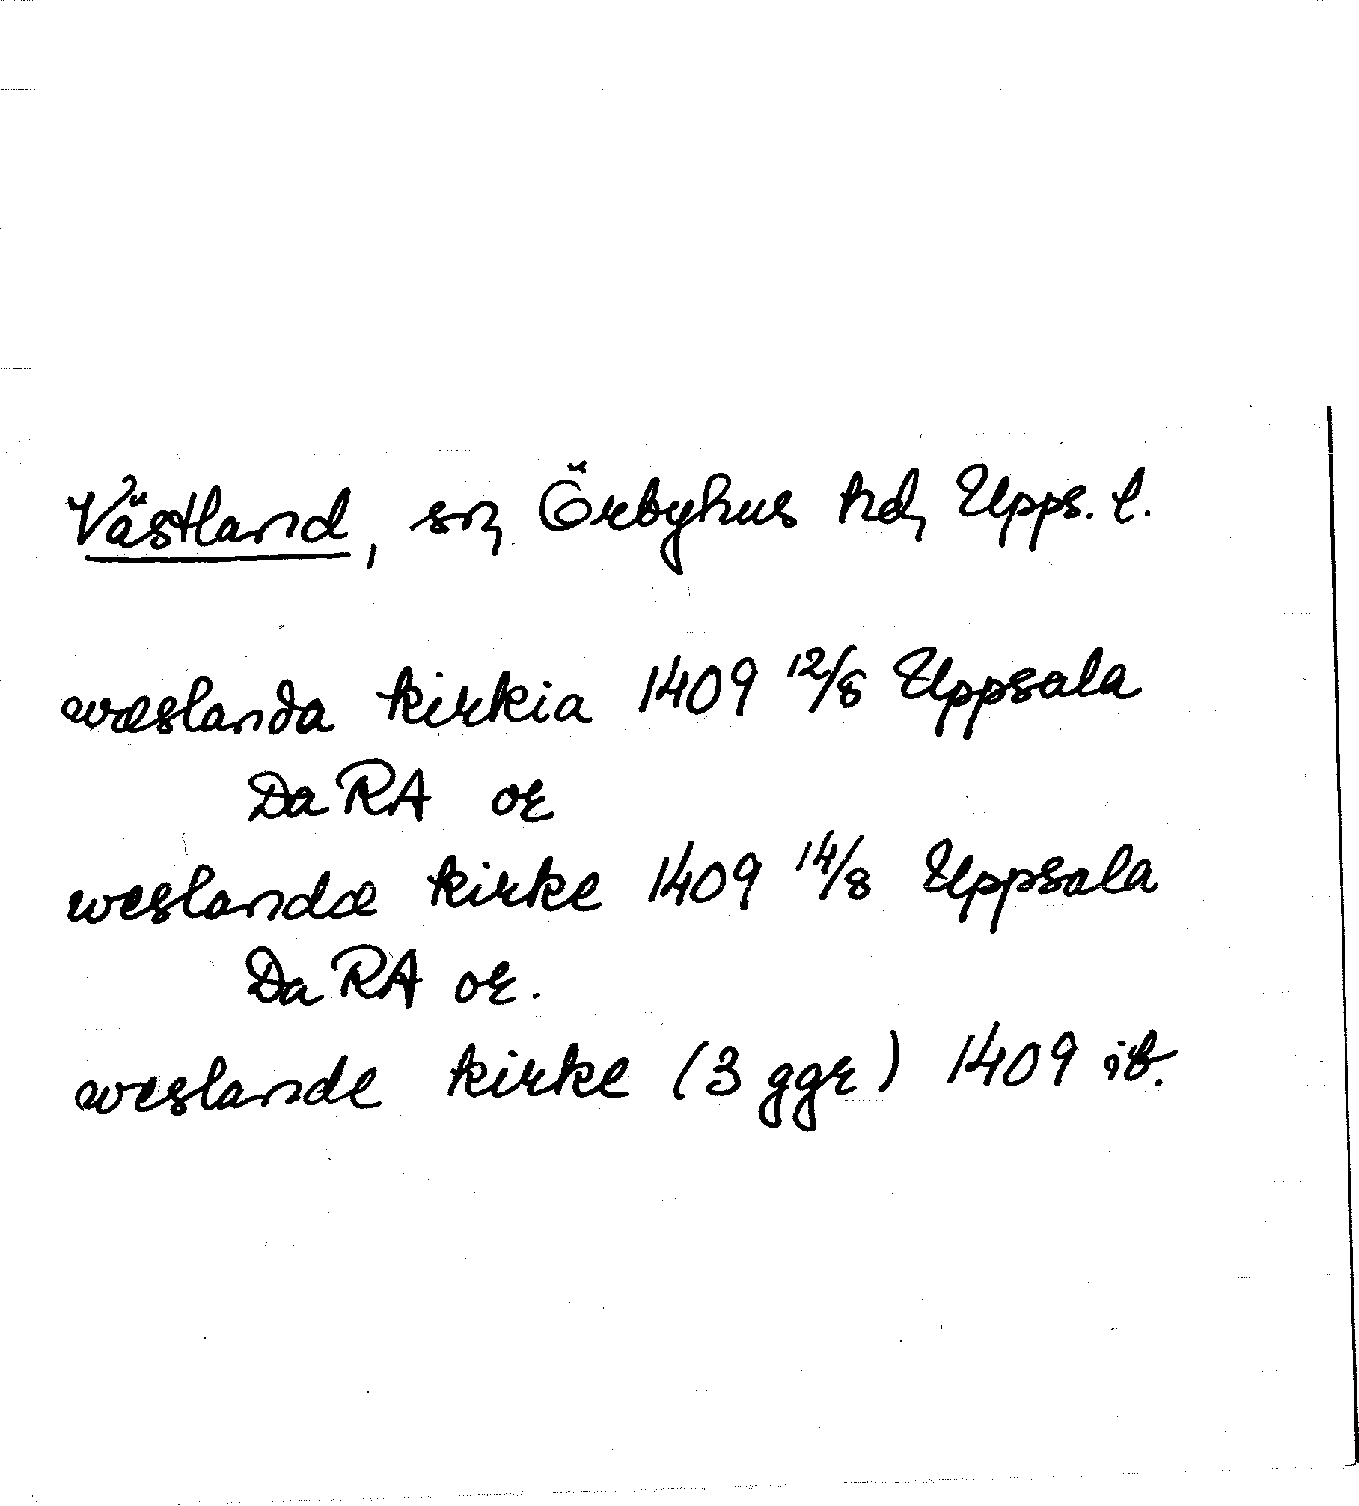 Västland, sn, Örbyhus hd, Upps. l.
wæslanda kirkia 1409 12/8 Uppsala
Da RA or
weslandæ kirke 1409 14/8 Uppsala
Da RA or.
weslande kirke (3 ggr) 1409 ib.